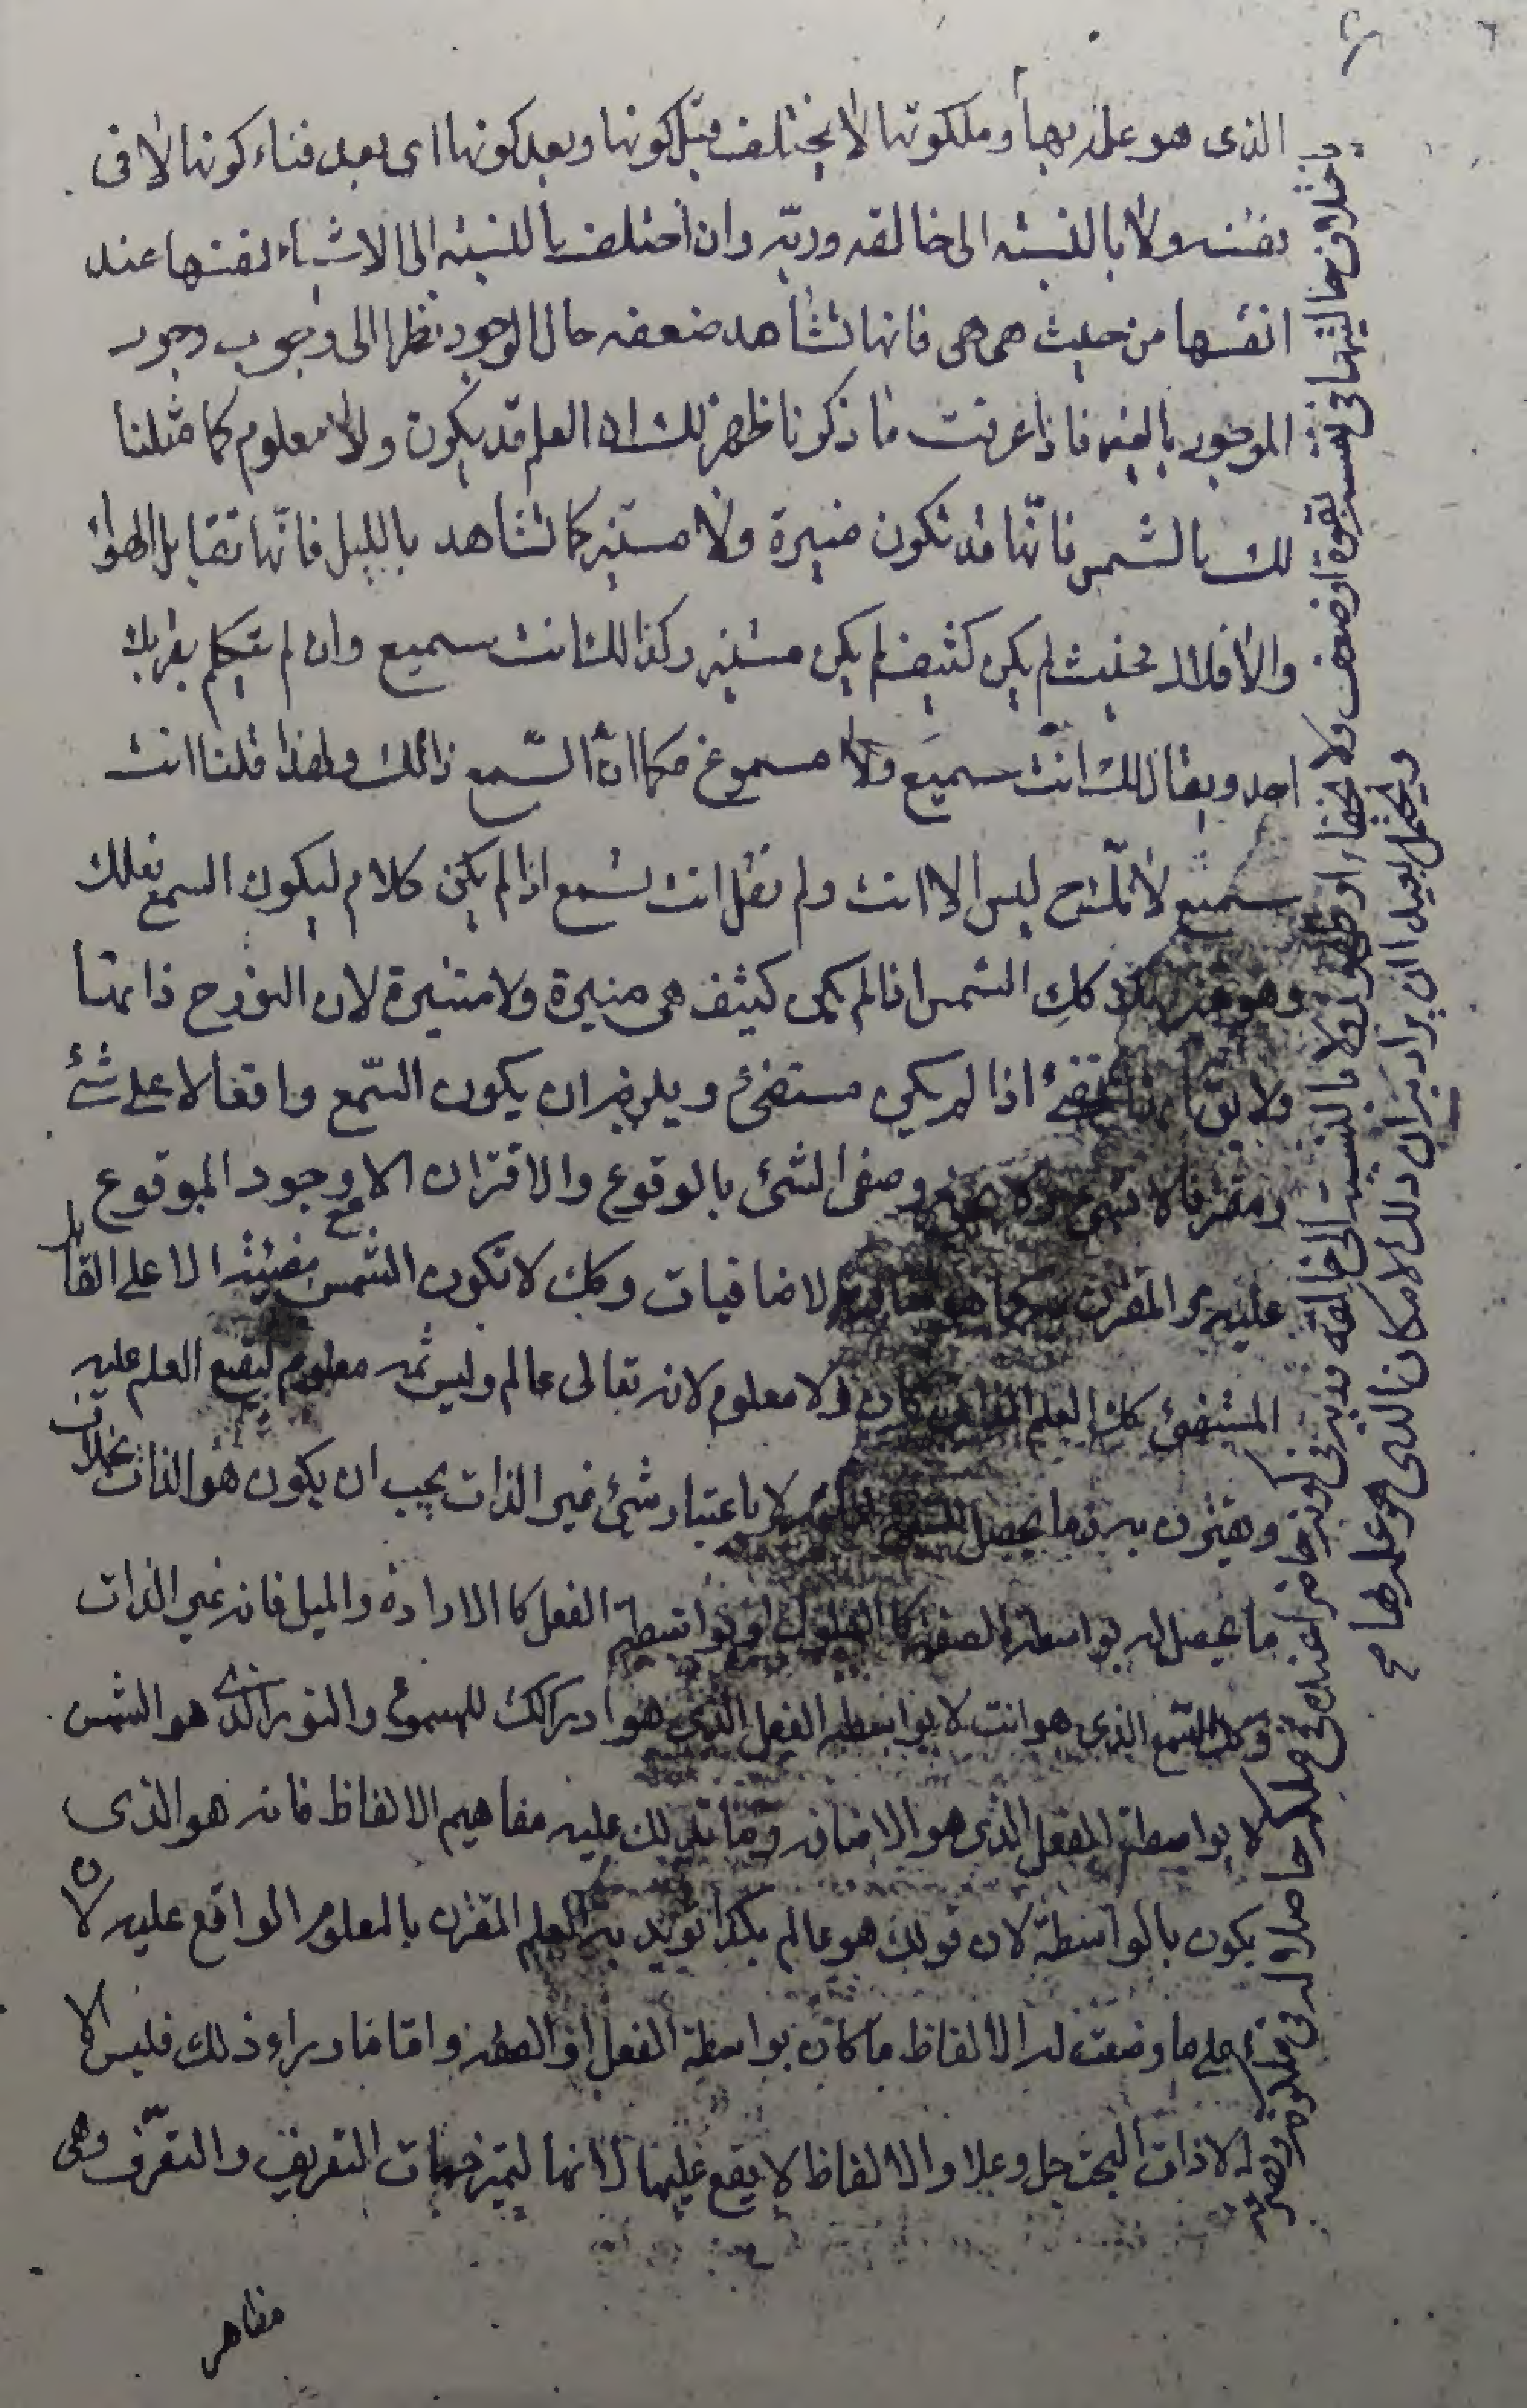 الذى هو علمه بها وملكوتها لا يختلف قبل كونها وبعد كونها اى بعد فناء كونها لا فى
نفسه ولا بالنسبة الى خالقه وربّه وان اختلف بالنسبة الى الاشياء نفسها عند
انفسها من حيث هى هى فانها تشاهد ضعفه حال الوجود نظرا الى وجوب وجود
الموجود بالغير فاذا عرفت ما ذكرنا ظهر لك ان العلم قد يكون ولا معلوم كما مثلنا
لك بالشمس فانّها قد تكون منيرة ولا مستنير كما تشاهد بالليل فانّها تقابل الهواء
والافلاك بحيث لم يكن كثيف لم يكن مستنير وكذالك انت سميع وان لم يتكلم بقربك
احد ويقال لك انت سميع ولا مسموع فكما انّ السّمع ذاتك ولهذا قلنا انت
سميع لانّك ح ليس الا انت ولم نقل انت تسمع اذا لم يكن كلام ليكون السمع فعلك
وهو كذلك الشمس اذا لم يكن كثيف هى منيرة ولا مستنيرة لان النور ح ذاتها
ولا يقال اذا لم يكن مستضئ ويلزم ان يكون السّمع واقعا لا على شئ
ومقترنا لا وصف الشئ بالوقوع والاقتران الا مع وجود الموقوع
عليه والمقترن به كما هو الاضافيات وكك لا تكون الشمس مضيئة الا على القابل
المستضئ كك العلم كان ولا معلوم لانه تعالى عالم وليس ثمه معلوم ليقع العلم عليه
ويقترن به وما يحصل لا باعتبار شئ غير الذات يجب ان يكون هو الذات بخلاف
ما يحصل له بواسطة الصفة او بواسطة الفعل كالارادة والميل فانه غير الذات
وكك السّمع الذى هو انت لا بواسطة الفعل الذى هو ادراكك للمسموع والنور الذى هو الشمس
لا بواسطة الفعل الذى هو الاضافه وما تدلك عليه مفاهيم الالفاظ فانه هو الذى
يكون بالواسطة لان قولك هو عالم بكذا تريد به العلم المقترن بالمعلوم الواقع عليه لان
على ما وضعت له الالفاظ ما كان بواسطة الفعل او الصفه واما ما وراء ذلك فليس الا
الا ذات البحت جل وعلا والالفاظ لا يقع عليها لانها لتميز جهات التعريف والتعرّف وهى
مظاهر
باختلاف حالتيها فى نفسه بقوة او ضعف ولا خفاء او ظهور ولا بالنسبة الى خالقه وربه فى كونه حاضرا عنده فى علمه حاصلا له فى ملكه
ويحتمل بعيدا ان يراد به ان ذلك الامكان الذى هو علمه بها ح